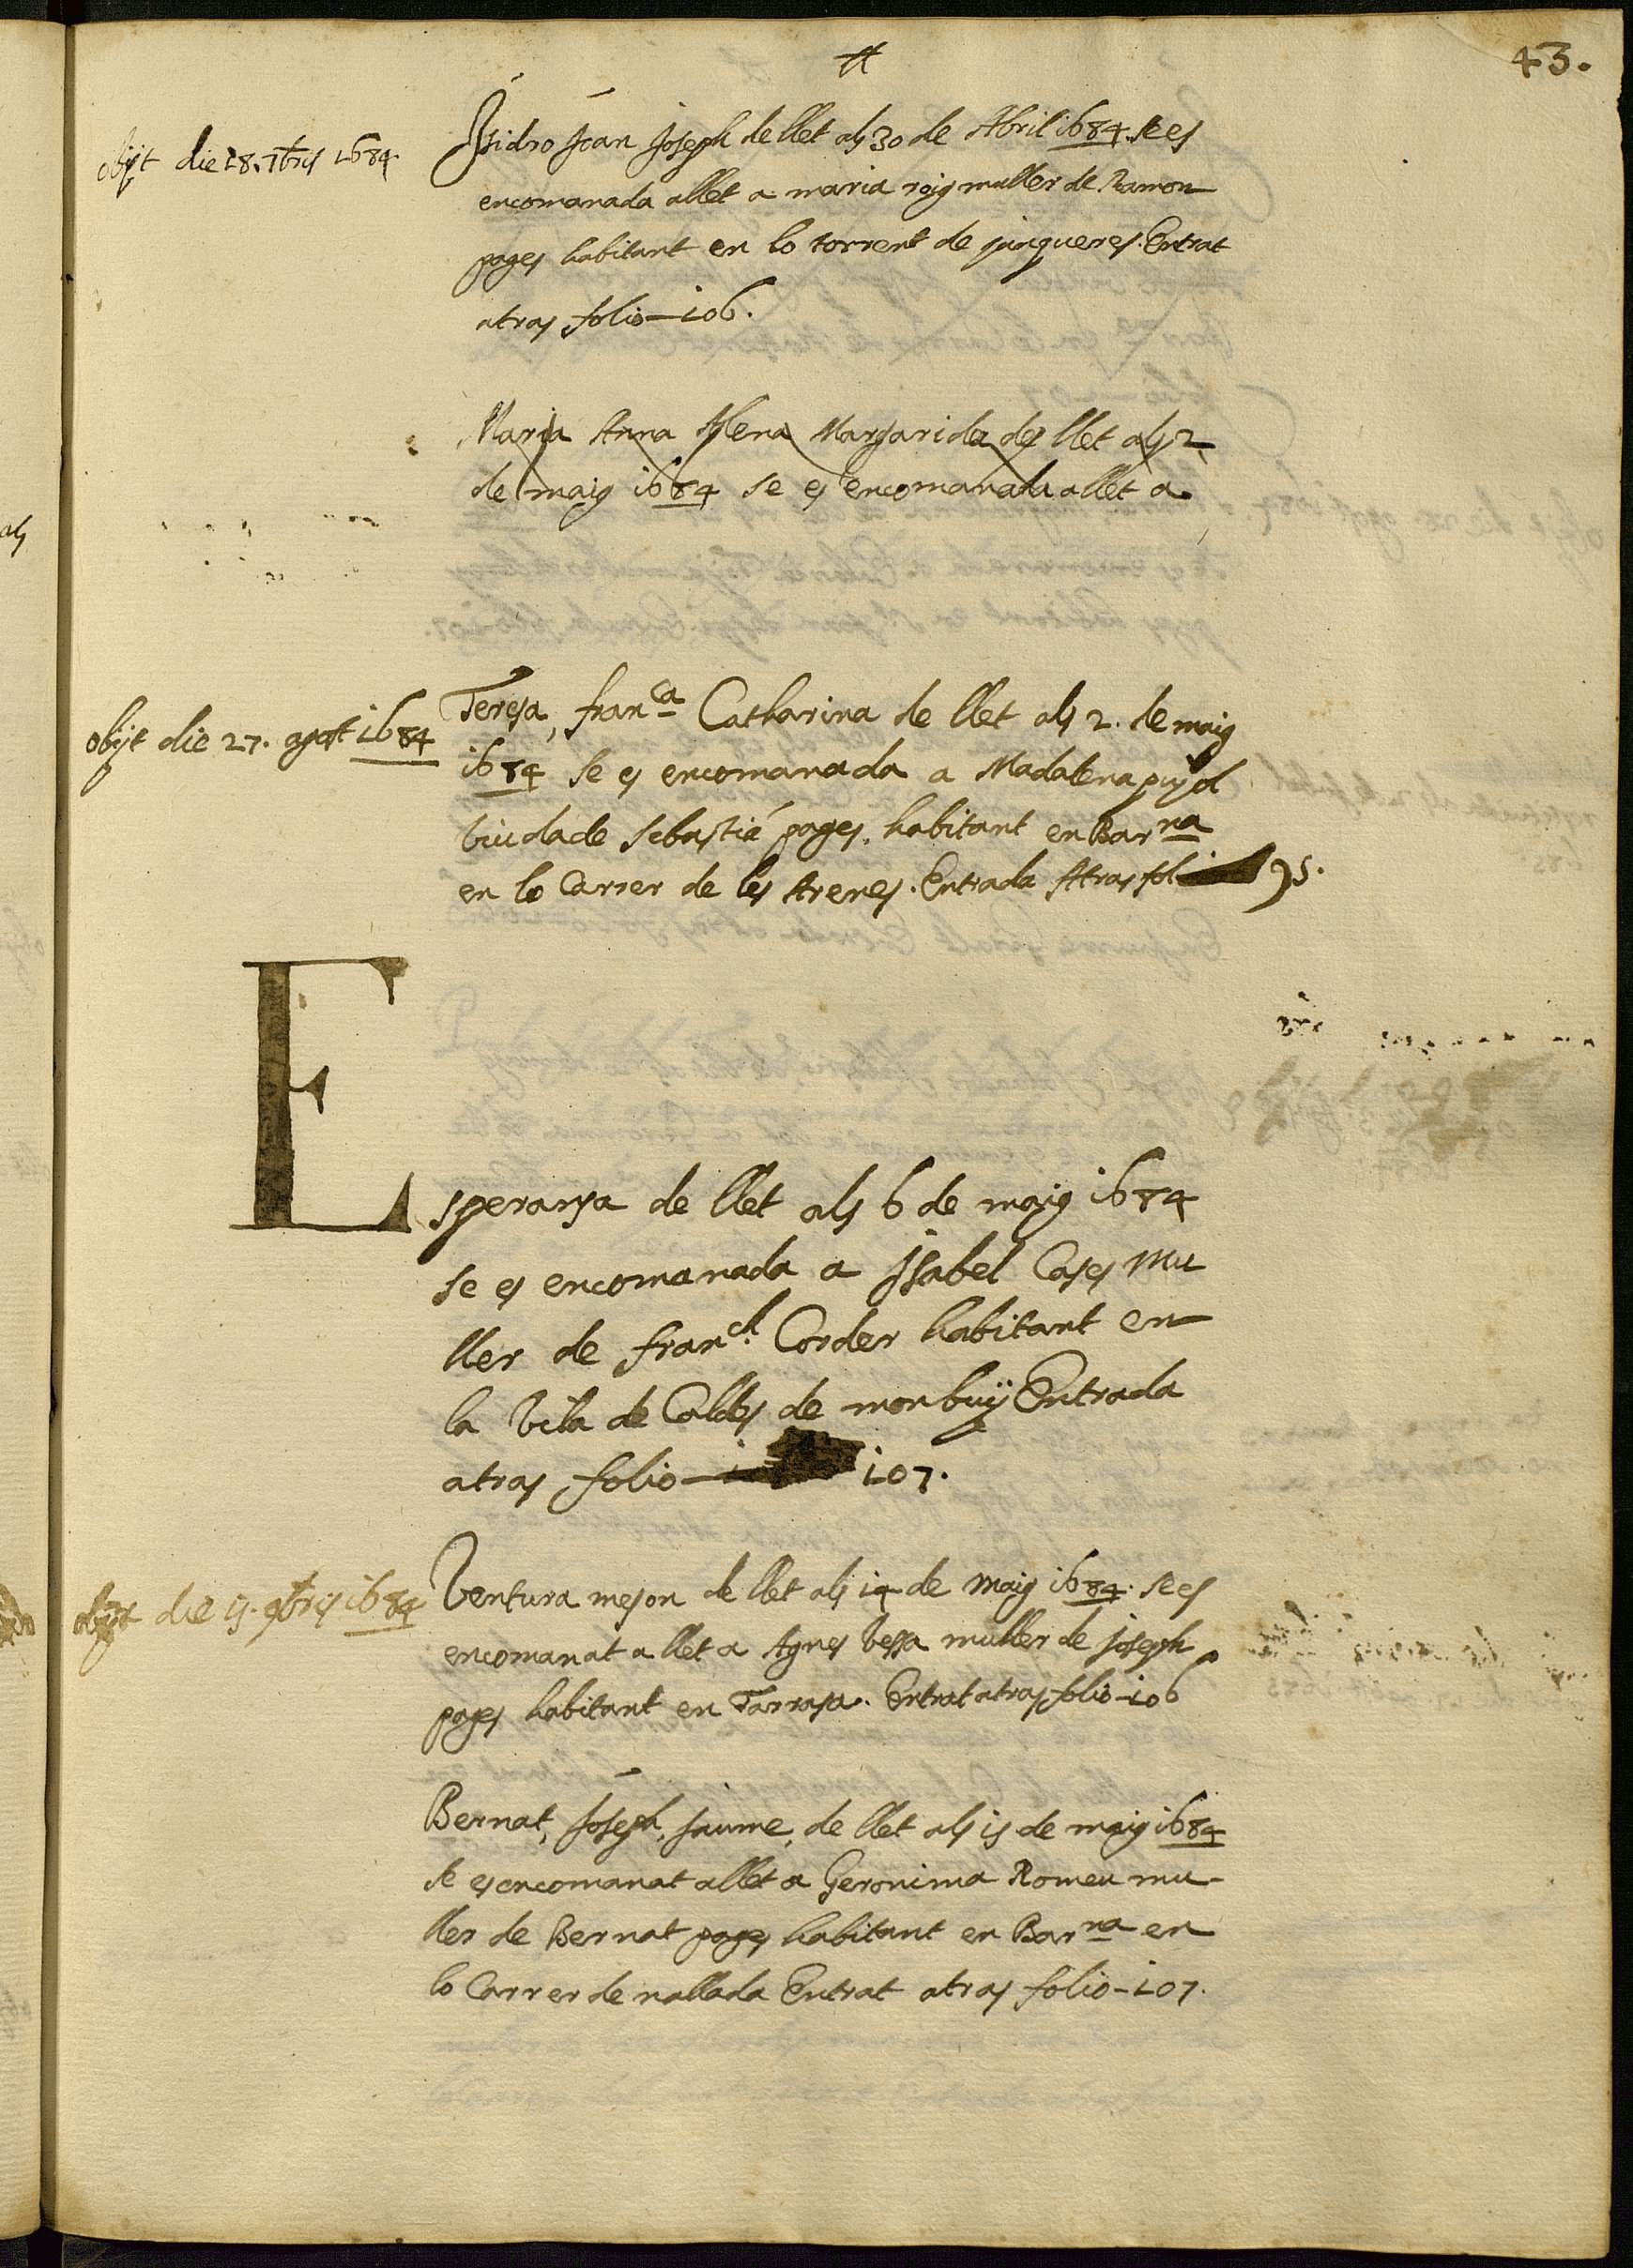 43.
obijt die 28. 7bris 1684.
Isidro Joan Joseph de llet als 30 de Abril 1684. se es
encomanada allet a maria roig muller de Ramon
pages habitant en lo torrent de junqueres. Entrat
atras folio—106.
Maria Anna Elena Margarida de llet als 2
de maig 1684 se es encomanada allet a
obijt die 27. agost 1684
Teresa, fran.ca Catharina de llet als 2. de maig
1684 se es encomanada a Madalena pujol
viuda de Sebastiá pages, habitant en Bar.na
en lo Carrer de les Arenes. Entrada Atras fol 95.
Esperansa de llet als 6 de maig 1684
se es encomanada a Isabel Cases mu
ller de fran.ch Corder habitant en
la vila de Caldes de monbuÿ Entrada
atras folio— 107.
obijt die 15. 9bris 1684
Ventura meson de llet als 14 de maig 1684. se es
encomanat a llet a Agnes vessa muller de Joseph
pages habitant en Tarrasa. Entrat atras folio—106
Bernat, Joseph, Jaume, de llet als 15 de maig 1684
se es encomanat allet a Geronima Romeu mu-
ller de Bernat pages habitant en Bar.na en
lo Carrer de nallada Entrat atras folio—107.